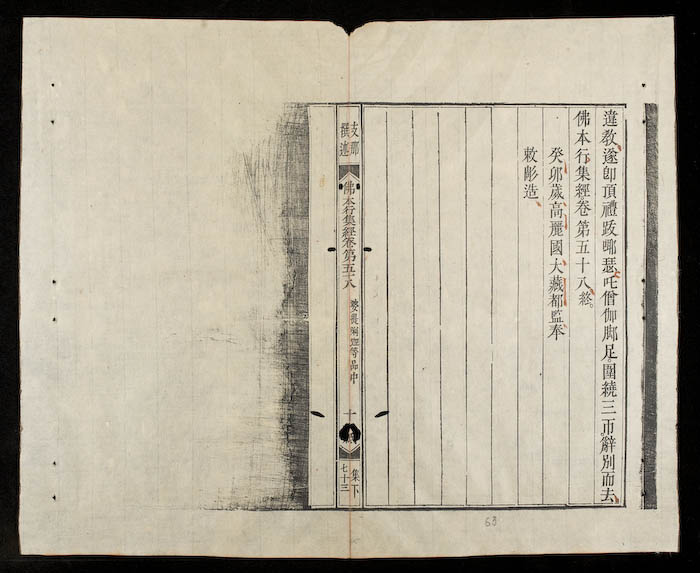 違教遂即頂禮跋㖿瑟吒僧伽脚足圍繞三帀辭別而去
佛本行集經卷第五十八終。
癸卯歲高麗國大藏都監奉
敕彫造
支那
撰述
佛本行集經卷第五十八
婆提唎迦等品中
十
集下
七十三
63